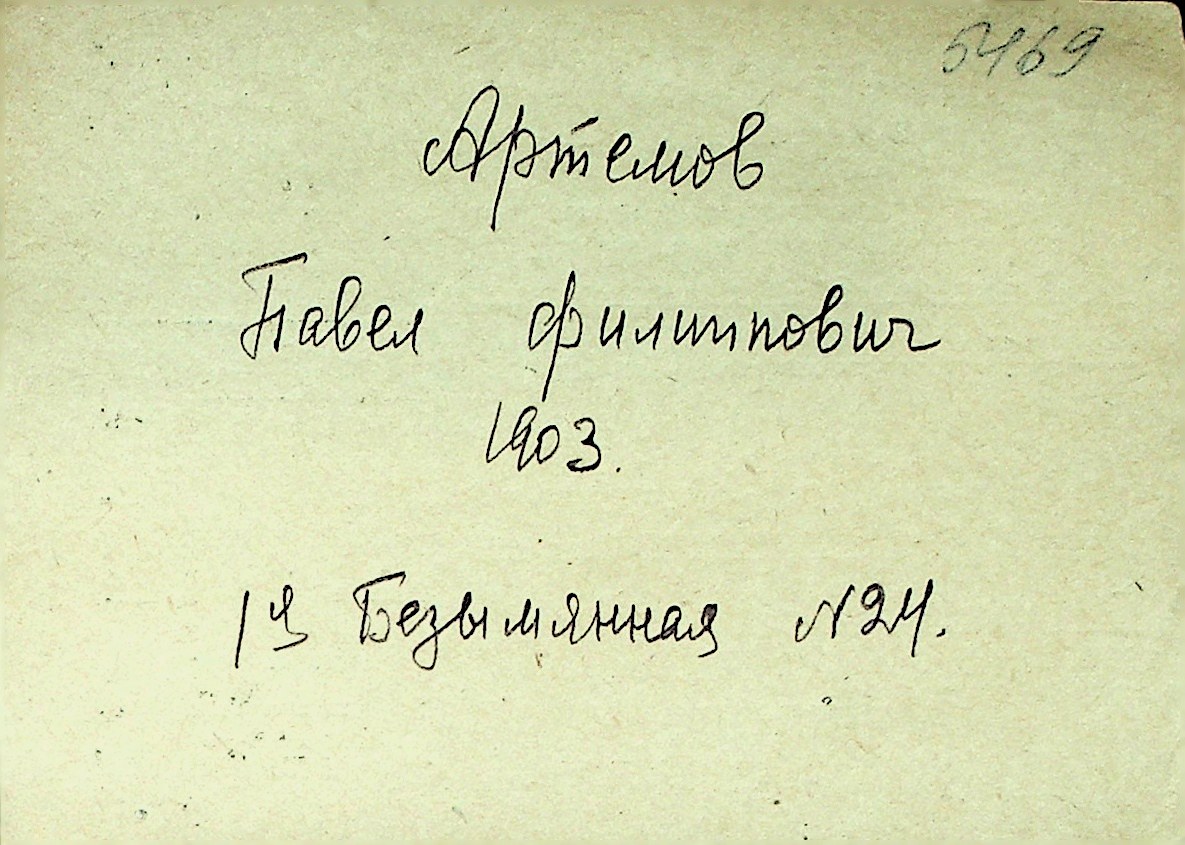 5469
Артемов
Павел Филиппович
1903.
1я Безымянная N24.